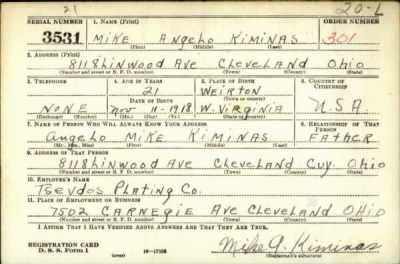 21
20-L
SERIAL NUMBER 1. NAME (Print) ORDER NUMBER
3531 MIKE Angelo KIMINAS 301
(First) (Middle) (Last)
2. ADDRESS (Print)
8118 Linwood Ave Cleveland Ohio
(Number and street or R. F. D. number) (Town) (County) (State)
3. TELEPHONE 4. AGE IN YEARS 5. PLACE OF BIRTH 6. COUNTRY OF CITIZENSHIP
21 WEIRTON
DATE OF BIRTH (Town or county)
NONE Nov 11-1918 W. VIRGINIA U.S.A
(Exchange) (Number) (Mo.) (Day) (Yr.) (State or country)
7. NAME OF PERSON WHO WILL ALWAYS KNOW YOUR ADDRESS 8. RELATIONSHIP OF THAT PERSON
Angelo MIKE KIMINAS FATHER
(Mr., Mrs., Miss) (First) (Middle) (Last)
9. ADDRESS OF THAT PERSON
8118 Linwood Ave Cleveland Cuy. Ohio
(Number and street or R. F. D. number) (Town) (County) (State)
10. EMPLOYER'S NAME
Tsevdos Plating Co.
11. PLACE OF EMPLOYMENT OR BUSINESS
7502 CARNEGIE Ave Cleveland Ohio
(Number and street or R. F. D. number) (Town) (County) (State)
I AFFIRM THAT I HAVE VERIFIED ABOVE ANSWERS AND THAT THEY ARE TRUE.
REGISTRATION CARD
D. S. S. Form 1
Mike A. Kiminas
(Registrant's signature)